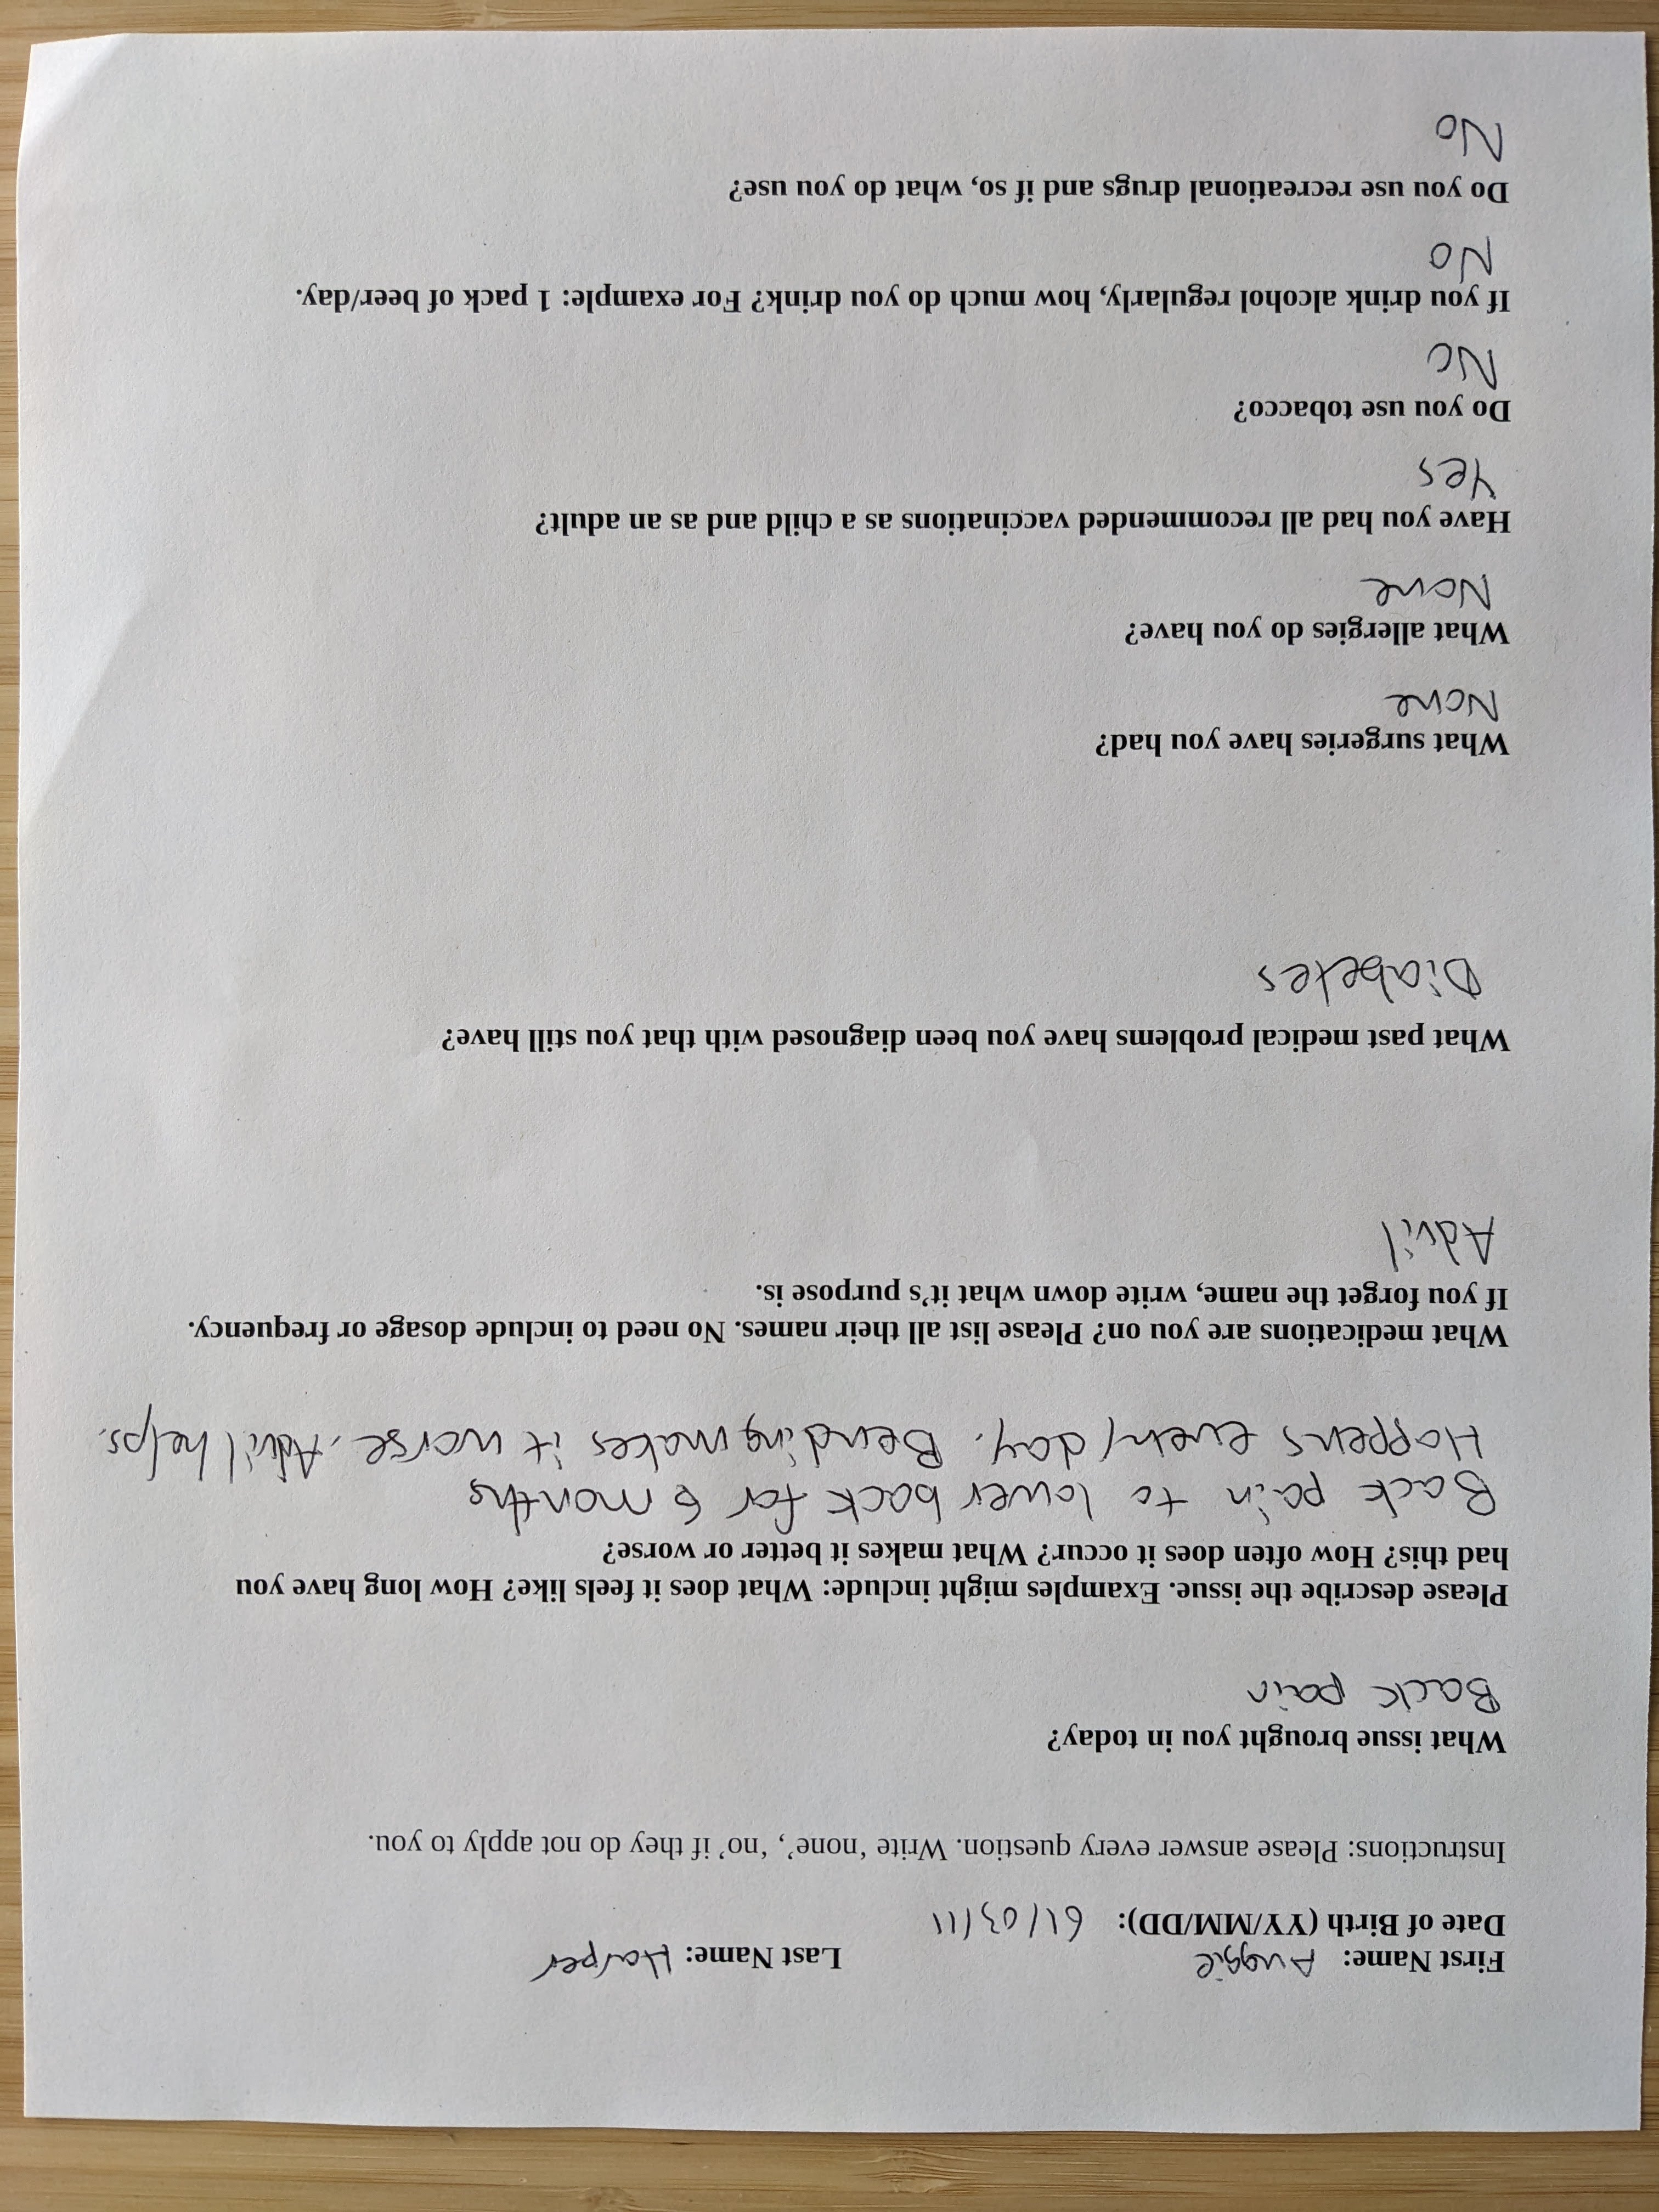 First Name: Auggie Last Name: Harper
Date of Birth (YY/MM/DD): 61/03/11
Instructions: Please answer every question. Write ‘none’, ‘no’ if they do not apply to you.
What issue brought you in today?
Back pain
Please describe the issue. Examples might include: What does it feels like? How long have you
had this? How often does it occur? What makes it better or worse?
Back pain to lower back for 6 months
Happens every day. Bending makes it worse. Advil helps.
What medications are you on? Please list all their names. No need to include dosage or frequency.
If you forget the name, write down what it’s purpose is.
Advil
What past medical problems have you been diagnosed with that you still have?
Diabetes
What surgeries have you had?
None
What allergies do you have?
None
Have you had all recommended vaccinations as a child and as an adult?
Yes
Do you use tobacco?
No
If you drink alcohol regularly, how much do you drink? For example: 1 pack of beer/day.
No
Do you use recreational drugs and if so, what do you use?
No